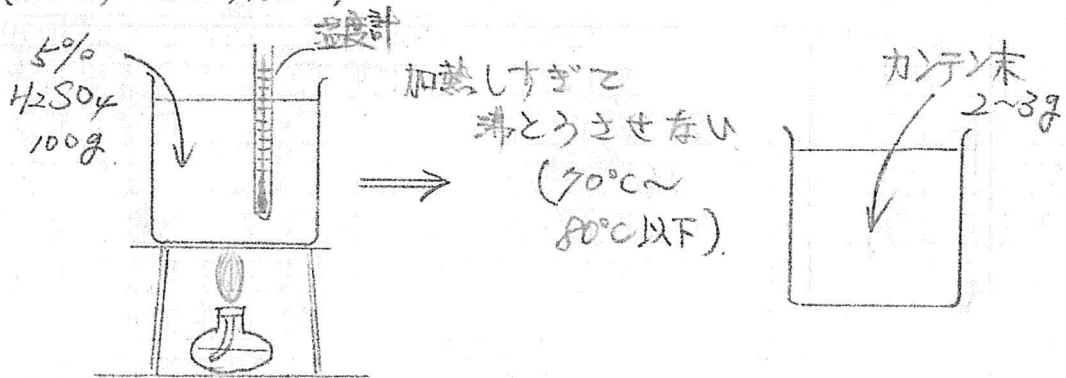 温度計
5%
H₂SO₄
100g
加熱しすぎて
沸とうさせない
(70℃〜
80℃以下)
カンテン末
2~3g